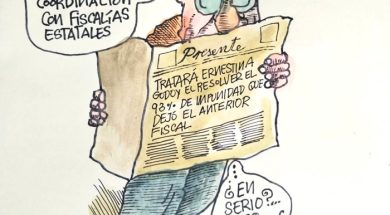 COORDINACIÓN
CON FISCALÍAS
ESTATALES
Presente
TRATARÁ ERNESTINA
GODOY EL RESOLVER EL
93% DE IMPUNIDAD QUE
DEJÓ EL ANTERIOR
FISCAL
¿EN
SERIO?...